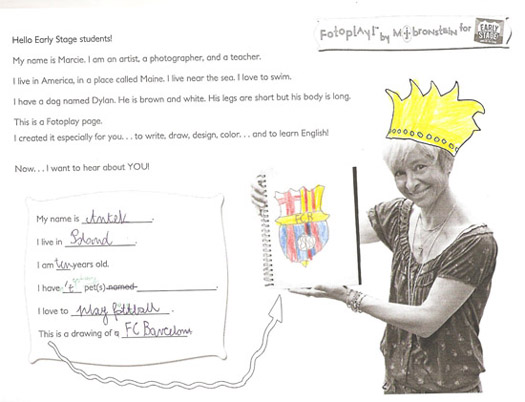 Fotoplay! by M bronstein for EARLY STAGE
Hello Early Stage students!
My name is Marcie. I am an artist, a photographer, and a teacher.
I live in America, in a place called Maine. I live near the sea. I love to swim.
I have a dog named Dylan. He is brown and white. His legs are short but his body is long.
This is a Fotoplay page.
I created it especially for you. . . to write, draw, design, color. . . and to learn English!
Now. . . I want to hear about YOU!
My name is Antek.
I live in Poland.
I am ten years old.
I have pet(s) named
I love to play football.
This is a drawing of a FC Barcelona
FCB